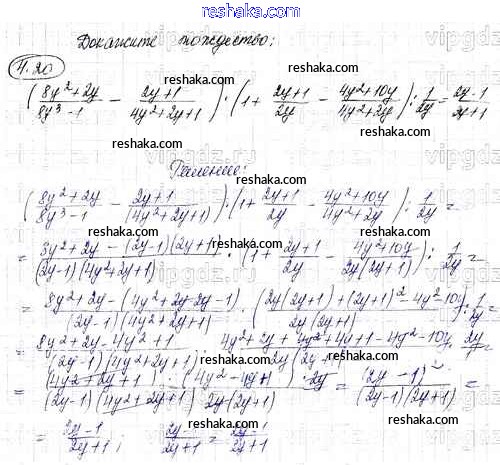 www.reshak.ru
Докажите тождество:
4.20
(8y²+2y/8y³-1 - 2y+1/4y²+2y+1) : (1 + 2y+1/2y - 4y²+10y/4y²+2y) : 1/2y = 2y-1/2y+1
Решение:
(8y²+2y/8y³-1 - 2y+1/(4y²+2y+1)) : (1 + 2y+1/2y - 4y²+10y/4y²+2y) : 1/2y =
= 8y²+2y - (2y-1)(2y+1)/(2y-1)(4y²+2y+1) · (1 + 2y+1/2y - 4y²+10y/2y(2y+1)) : 1/2y =
= 8y²+2y - (4y²+2y-2y-1)/(2y-1)(4y²+2y+1) · (2y(2y+1)+(2y+1)²-4y²-10y/2y(2y+1)) : 1/2y =
= 8y²+2y-4y²+1/(2y-1)(4y²+2y+1) · 4y²+2y+4y²+4y+1-4y²-10y/2y(2y+1) · 2y/1 =
= (4y²+2y+1)/(2y-1)(4y²+2y+1) · (4y²-4y+1)/2y(2y+1) · 2y = (2y-1)²/(2y-1)(2y+1) =
= 2y-1/2y+1; 2y-1/2y+1 = 2y-1/2y+1